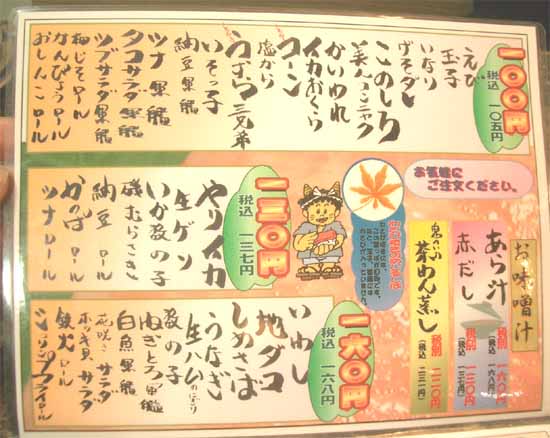 一〇〇円
税込 一〇五円
えび
玉子
いなり
げそダレ
このしろ
かいわれ
イカおくら
コーン
塩から
うずら三兄弟
いそっ子
納豆軍艦
ツナ軍艦
タコサラダ軍艦
ツブサラダ軍艦
梅じそロール
かんぴょうロール
おしんこロール
お気軽に
ご注文ください。
一三〇円
税込 一三七円
ヤリイカ
生ゲソ
いか数の子
磯むらさき
納豆ロール
かっぱロール
ツナロール
お味噌汁
あら汁
税別 一六〇円
(税込 一六八円)
赤だし
税別 一二〇円
(税込
茶わん蒸し
税別 二二〇円
(税込 二三一円)
一六〇円
税込 一六八円
いわし
地ダコ
しめさば
うなぎ
生ハム
数の子
ねぎとろ軍艦
白魚軍艦
ホッキ貝サラダ
鉄火ロール